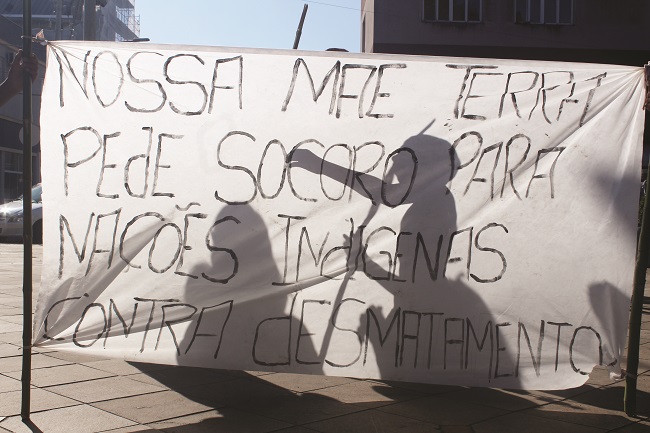 NOSSA MAE TERRA
PEdE SOCORO PARA
NACÕES INdIGENAS
CONTRA dESMATAMENTO